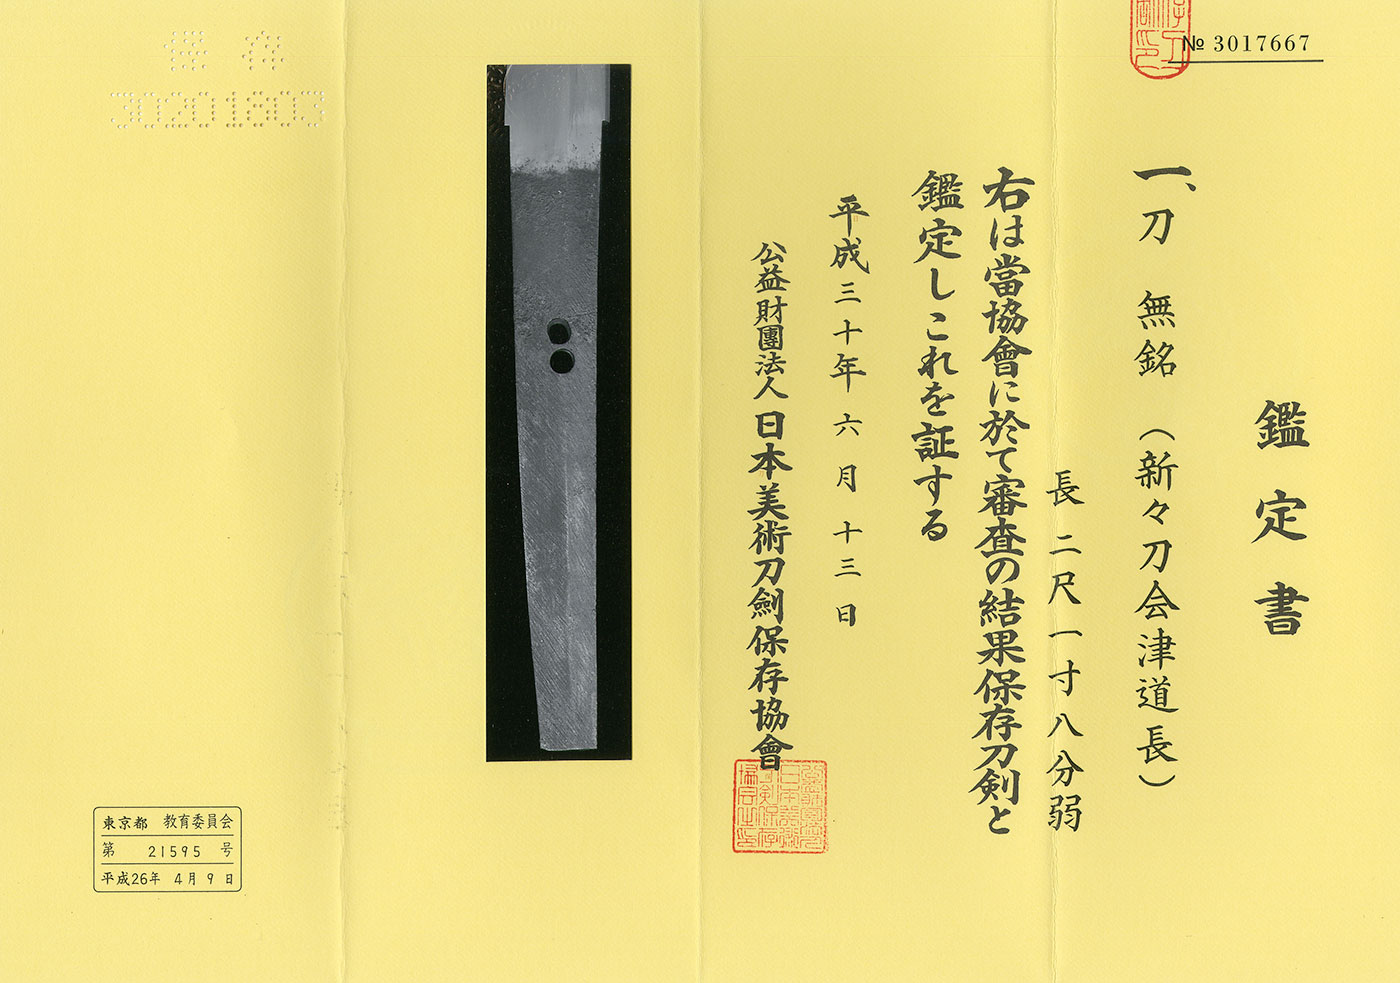 № 3017667
鑑定書
一、刀 無銘 (新々刀会津道長)
長 二尺一寸八分弱
右は當協會に於て審査の結果保存刀剣と
鑑定しこれを証する
平成三十年六月十三日
公益財團法人 日本美術刀劍保存協會
保存
30201803
東京都 教育委員会
第 21595 号
平成26年 4月 9日